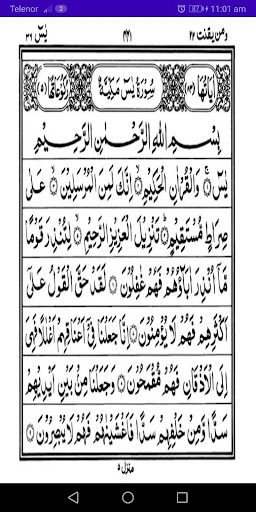 Telenor 11:01 am
ومن يقنت ٢٢ ٤٤١ يٰسٓ ٣٦
اٰيَاتُهَا (٨٣) سُوْرَةُ يٰسٓ مَكِّيَّةٌ رُكُوْعَاتُهَا (٥)
بِسْمِ اللّٰهِ الرَّحْمٰنِ الرَّحِيْمِ
يٰسٓ ۝ وَالْقُرْاٰنِ الْحَكِيْمِ ۝ اِنَّكَ لَمِنَ الْمُرْسَلِيْنَ ۝ عَلٰى
صِرَاطٍ مُّسْتَقِيْمٍ ۝ تَنْزِيْلَ الْعَزِيْزِ الرَّحِيْمِ ۝ لِتُنْذِرَ قَوْمًا
مَّآ اُنْذِرَ اٰبَآؤُهُمْ فَهُمْ غٰفِلُوْنَ ۝ لَقَدْ حَقَّ الْقَوْلُ عَلٰٓى
اَكْثَرِهِمْ فَهُمْ لَا يُؤْمِنُوْنَ ۝ اِنَّا جَعَلْنَا فِيْٓ اَعْنَاقِهِمْ اَغْلٰلًا فَهِيَ
اِلَى الْاَذْقَانِ فَهُمْ مُّقْمَحُوْنَ ۝ وَجَعَلْنَا مِنْۢ بَيْنِ اَيْدِيْهِمْ
سَدًّا وَّمِنْ خَلْفِهِمْ سَدًّا فَاَغْشَيْنٰهُمْ فَهُمْ لَا يُبْصِرُوْنَ ۝
منزل ٥